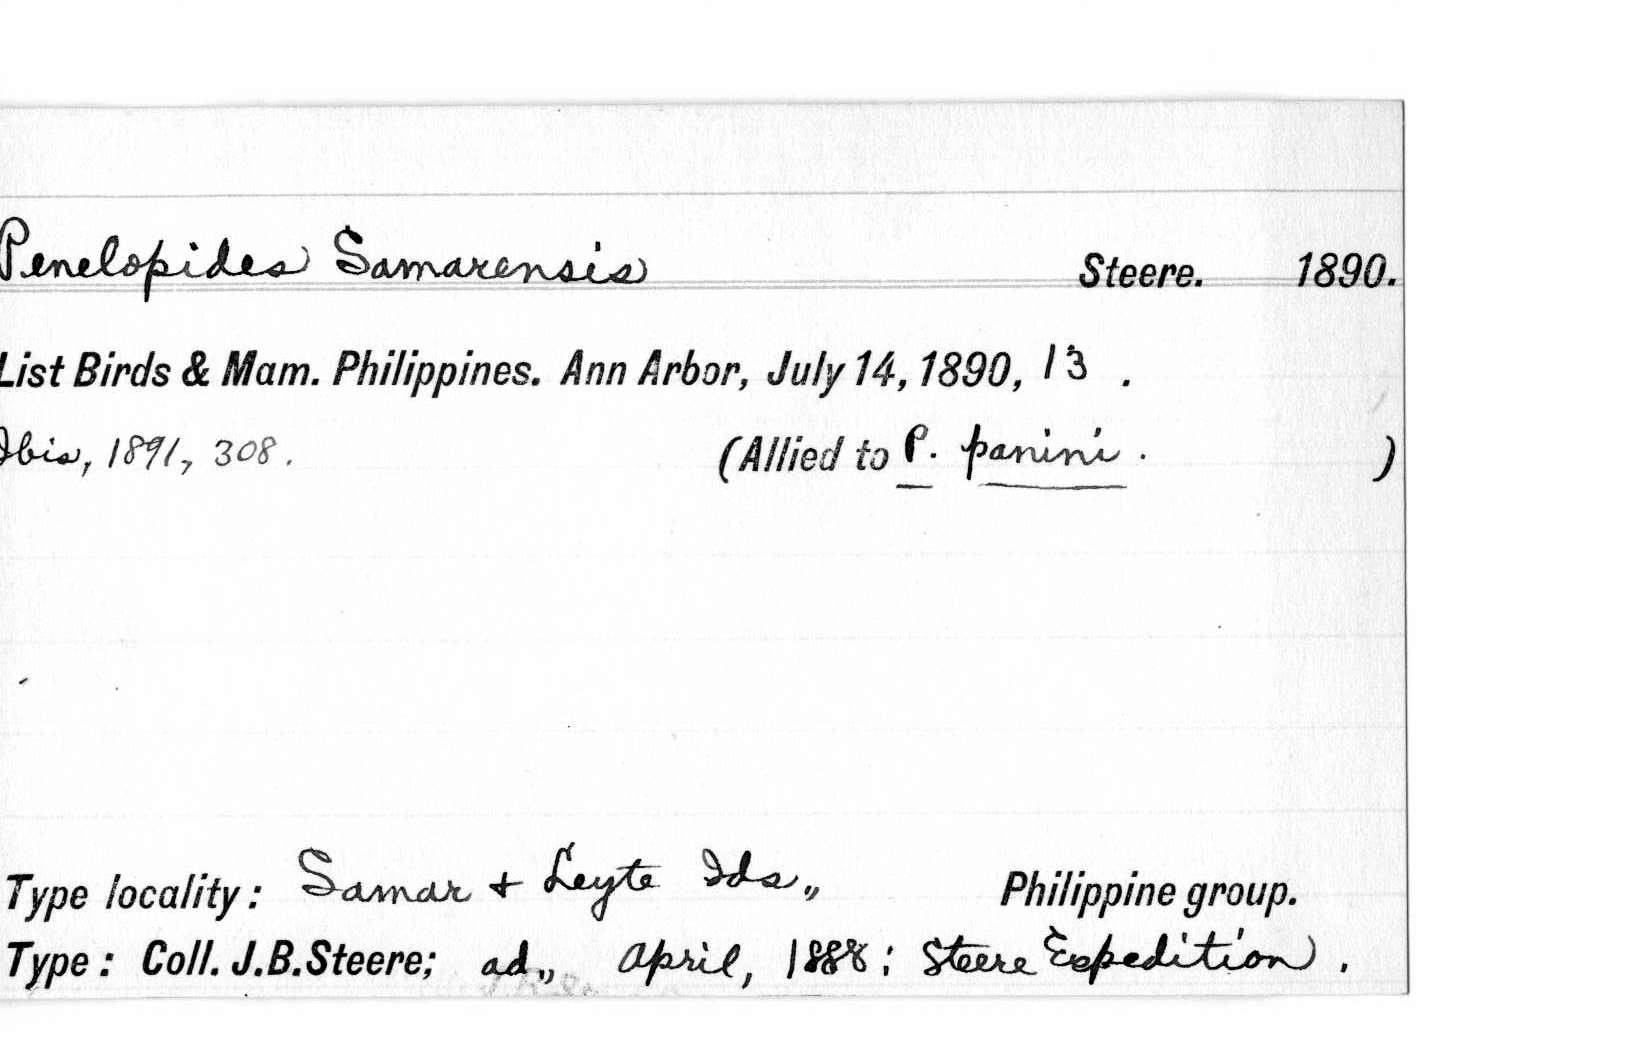 Penelopides Samarensis Steere. 1890.
List Birds & Mam. Philippines. Ann Arbor, July 14, 1890, 13 .
Ibis, 1891, 308. (Allied to P. panini. )
Type locality: Samar + Leyte Ids,, Philippine group.
Type: Coll. J.B.Steere; ad,, April, 1888; Steere Expedition.